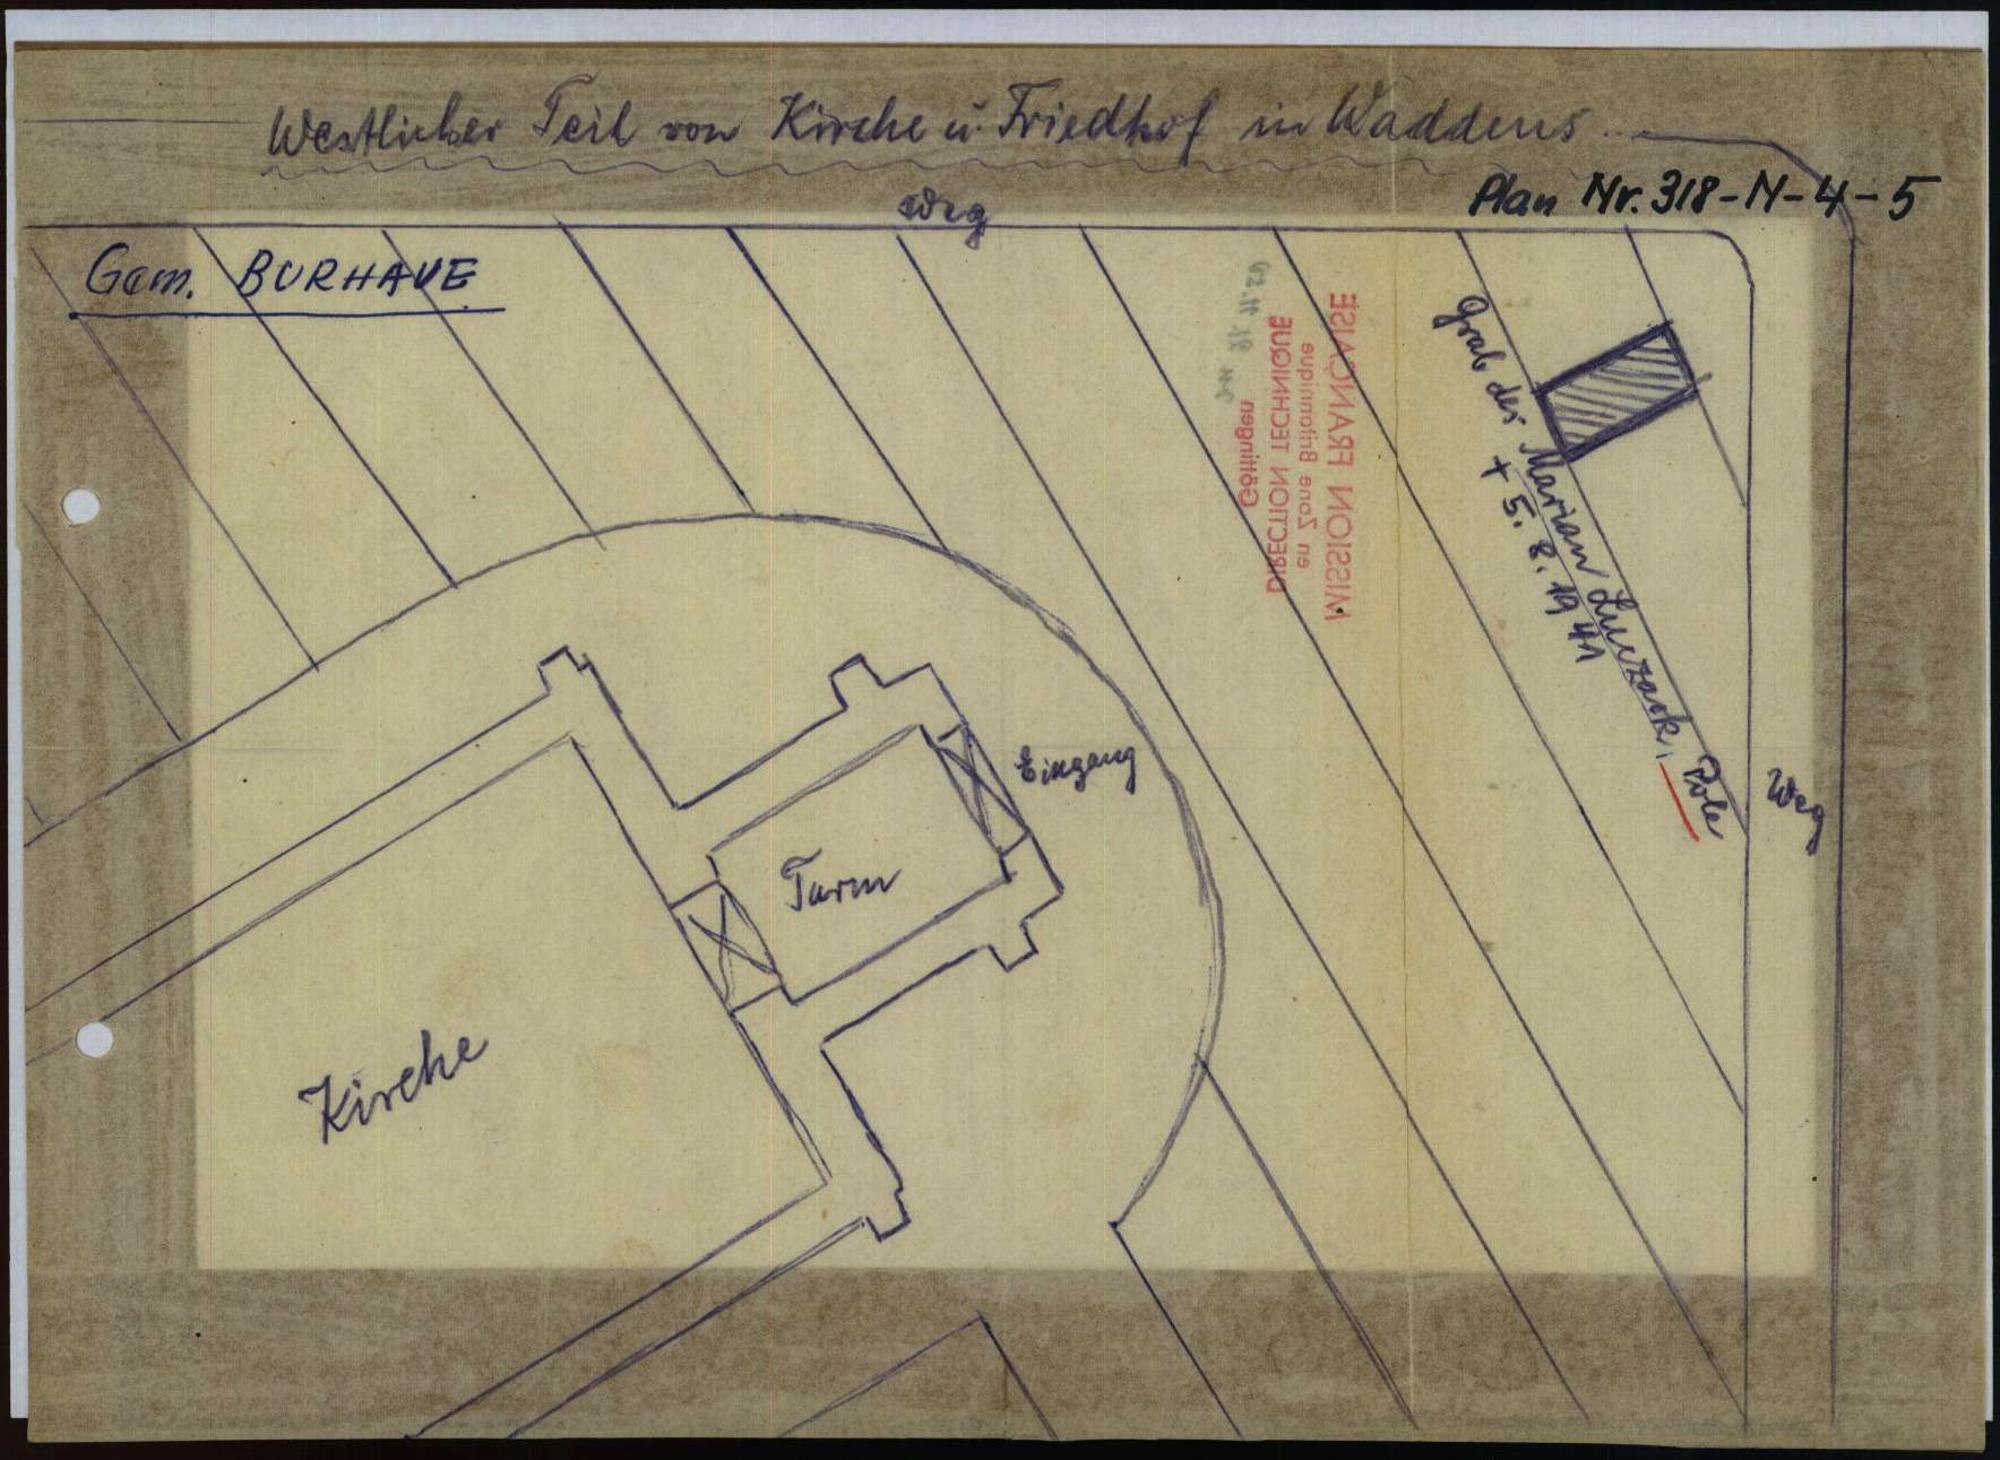 Westlicher Teil von Kirche u. Friedhof in Waddens
Plan Nr. 318-N-4-5
Weg
Gem. BURHAVE
MISSION FRANÇAISE
en Zone Britannique
DIRECTION TECHNIQUE
Göttingen
Grab des Marian Luczack, Pole
+ 5. 8. 1941
Weg
Eingang
Turm
Kirche